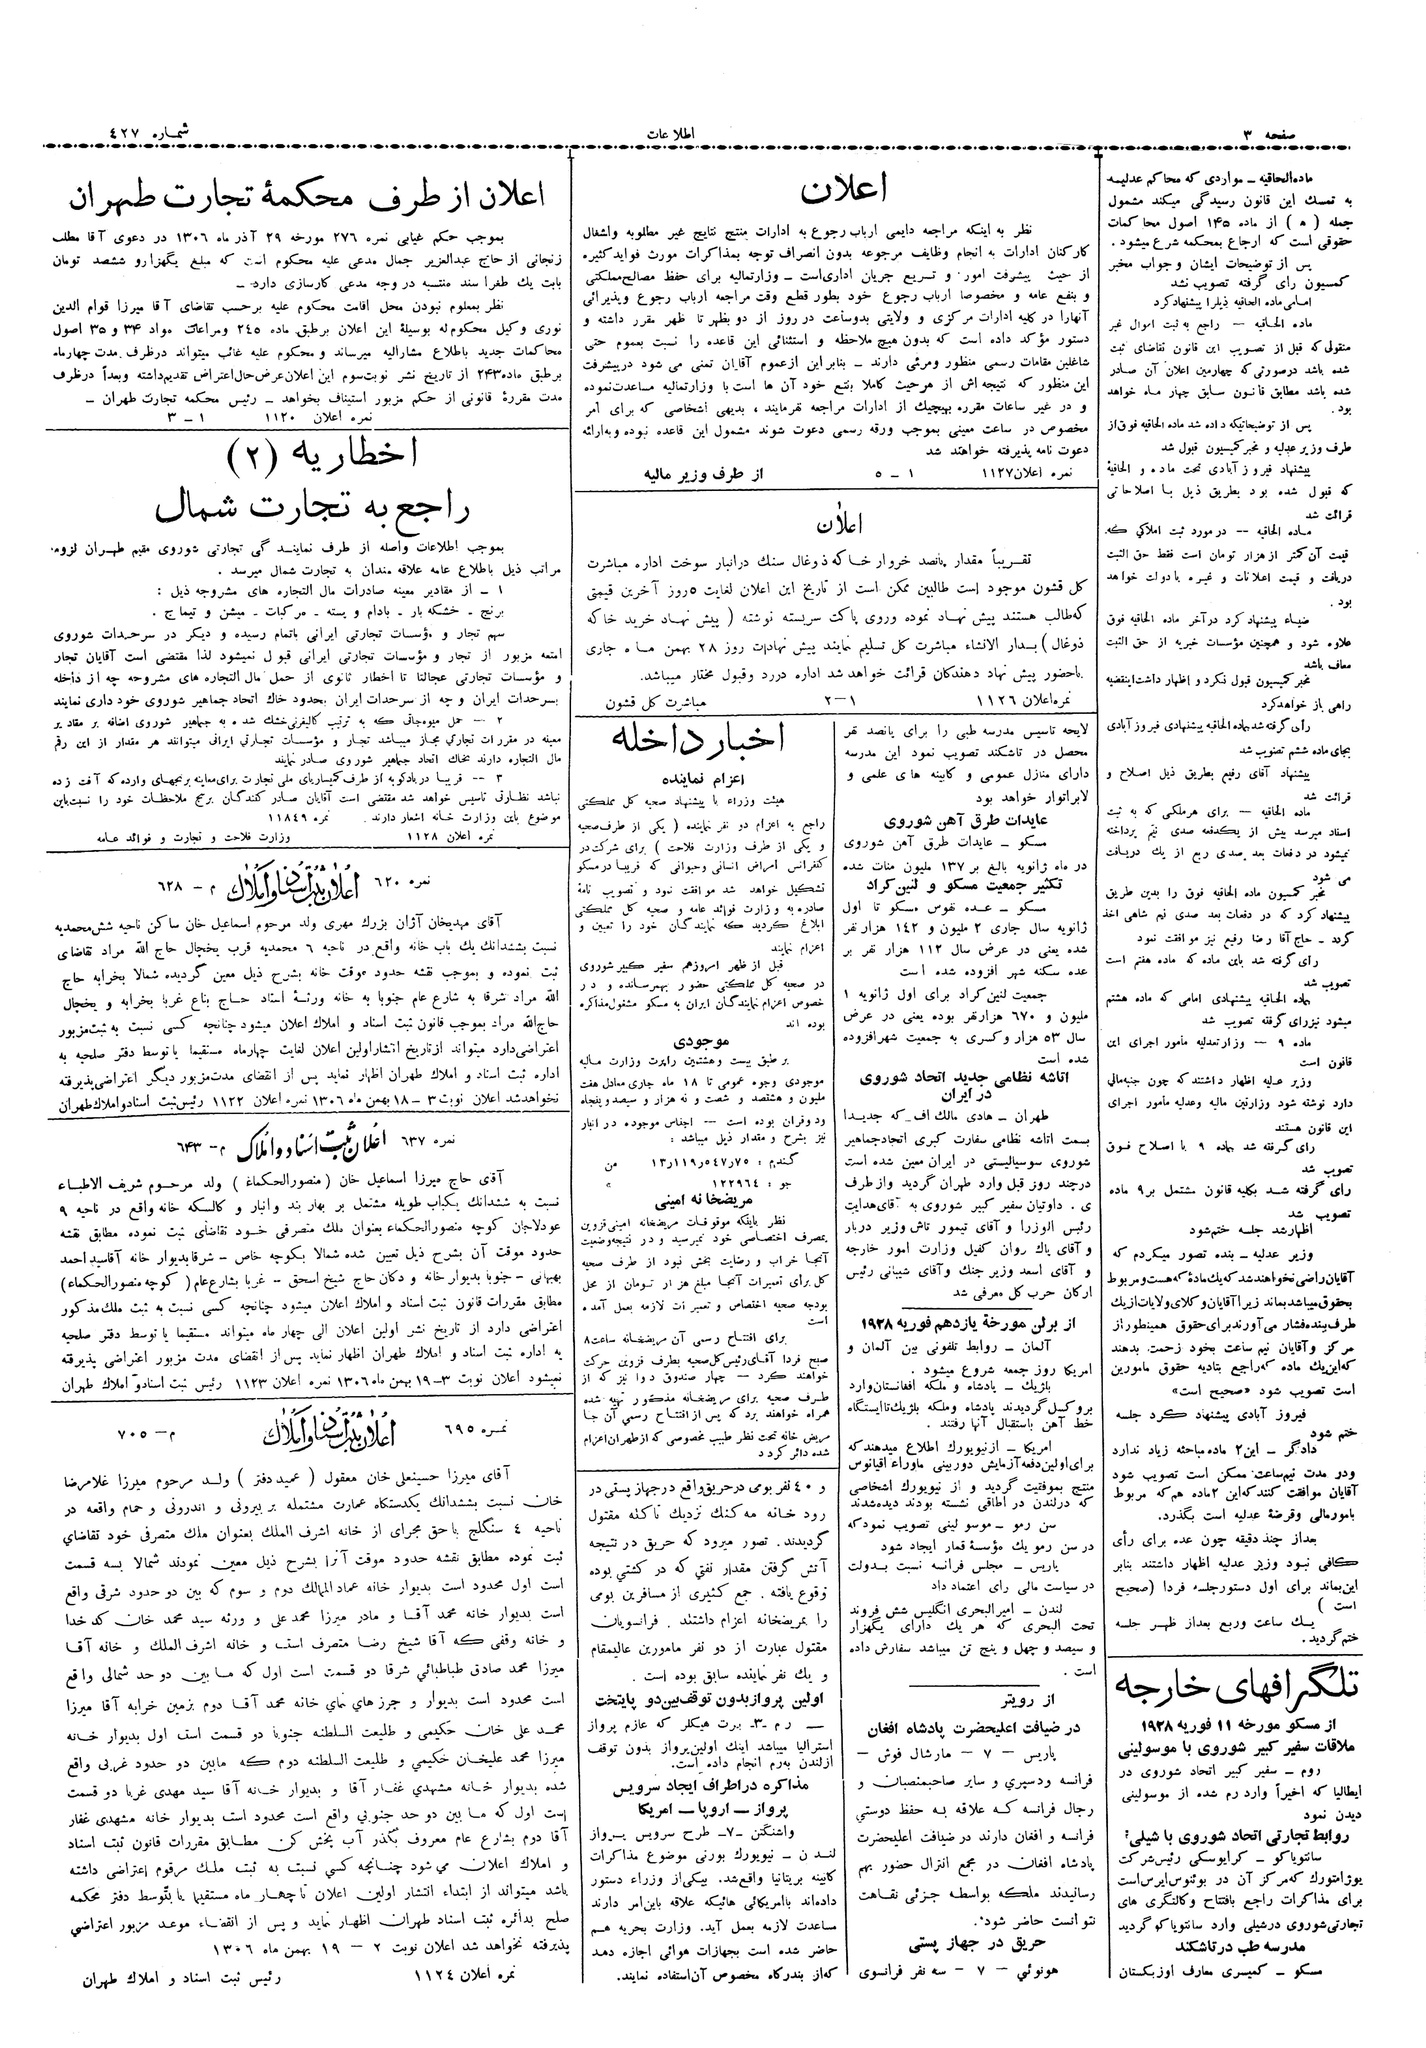 صفحه ۳
اطلاعات
شماره ٤٢٧
ماده‌الحاقیه ـ مواردی که محاکم عدلیه
به تمسك این قانون رسیدگی میکند مشمول
جمله ( ه ) از ماده ۱۴۵ اصول محاکمات
حقوقی است که ارجاع بمحکمه شرع میشود .
پس از توضیحات ایشان و جواب مخبر
کمسیون رأی گرفته تصویب نشد
امامی ماده الحاقیه ذیلرا پیشنهاد کرد
ماده الحاقیه — راجع به ثبت اموال غیر
منقولی که قبل از تصویب این قانون تقاضای ثبت
شده باشد درصورتی که چهارمین اعلان آن صادر
شده باشد مطابق قانون سابق چهار ماه خواهد
بود .
پس از توضیحاتیکه داده شد ماده الحاقیه فوق از
طرف وزیر عدلیه و مخبر کمیسیون قبول شد
پیشنهاد فیروز آبادی تحت ماده و الحاقیهٔ
که قبول شده بود بطریق ذیل با اصلاحاتی
قرائت شد
ماده الحاقیه -- در مورد ثبت املاکی که
قیمت آن کمتر از هزار تومان است فقط حق الثبت
دریافت و قیمت اعلانات و غیره با دولت خواهد
بود .
ضیاء پیشنهاد کرد در آخر ماده الحاقیه فوق
علاوه شود و همچنین مؤسسات خیریه از حق الثبت
معاف باشد
مخبر کمیسیون قبول نکرد و اظهار داشت اینقضیه
راهی باز خواهد کرد
رأی گرفته شد بماده الحاقیه پیشنهادی فیروز آبادی
بجای ماده ششم تصویب شد
پیشنهاد آقای رفیع بطریق ذیل اصلاح و
قرائت شد
ماده الحاقیه — برای هر ملکی که به ثبت
اسناد میرسد بیش از یکدفعه صدی نیم پرداخته
نمیشود در دفعات بعد صدی ربع از یك دریافت
می شود
مخبر کمسیون ماده الحاقیه فوق را بدین طریق
پیشنهاد کرد که در دفعات بعد صدی نیم شاهی اخذ
گردد - حاج آقا رضا رفیع نیز موافقت نمود
رای گرفته شد باین ماده که ماده هفتم است
تصویب شد
بماده الحاقیه پیشنهادی امامی که ماده هشتم
میشود نیزرای گرفته تصویب شد
ماده ۹ — وزارتعدلیه مأمور اجرای این
قانون است
وزیر عدلیه اظهار داشتند که چون جنبه‌مالی
دارد نوشته شود وزارتین مالیه وعدلیه مأمور اجرای
این قانون هستند
رای گرفته شد بماده ۹ با اصلاح فوق
تصویب شد
رای گرفته شد بکلیه قانون مشتمل بر ۹ ماده
تصویب شد
اظهارشد جلسه ختم‌شود
وزیر عدلیه ـ بنده تصور میکردم که
آقایان راضی نخواهند شد که یك مادهٔ که هست و مربوط
بحقوق میباشد بماند زیرا آقایان وکلای ولایات از یك
طرف بنده فشار می آورند برای حقوق همینطور از
مرکز و آقایان نیم ساعت بخود زحمت بدهند
که این یك ماده که راجع بتادیه حقوق مامورین
است تصویب شود «صحیح است»
فیروز آبادی پیشنهاد کرد جلسه
ختم شود
دادگر ـ این ۲ ماده مباحثه زیاد ندارد
ودر مدت نیم‌ساعت ممکن است تصویب شود
آقایان موافقت کنند که این ۲ ماده هم که مربوط
بامورمالی وقرضهٔ عدلیه است بگذرد.
بعداز چند دقیقه چون عده برای رأی
کافی نبود وزیر عدلیه اظهار داشتند بنابر
این بماند برای اول دستورجلسه فردا (صحیح
است )
یك ساعت وربع بعداز ظهر جلسه
ختم گردید .
تلگرافهای خارجه
از مسکو مورخه ۱۱ فوریه ۱۹۲۸
ملاقات سفیر کبیر شوروی با موسولینی
روم ـ سفیر کبیر اتحاد شوروی در
ایطالیا که اخیراً وارد رم شده از موسولینی
دیدن نمود
روابط تجارتی اتحاد شوروی با شیلی؛
سانتویاکو ـ کرایوسکی رئیس شرکت
یوژامتورك که مرکز آن در بوئنوس‌ایرس است
برای مذاکرات راجع بافتتاح وکالتگری های
تجارتی‌شوروی درشیلی وارد سانتویاکو گردید
مدرسه طب در تاشکند
مسکو ـ کمیسری معارف اوزبکستان
اعلان
نظر به اینکه مراجعه دایمی ارباب رجوع به ادارات منتج نتایج غیر مطلوبه واشغال
کارکنان ادارات به انجام وظایف مرجوعه بدون انصراف توجه بمذاکرات مورث فواید کثیره
از حیث پیشرفت امور و تسریع جریان اداری‌است ـ وزارتمالیه برای حفظ مصالح‌مملکتی
و بنفع عامه و مخصوصا ارباب رجوع خود بطور قطع وقت مراجعه ارباب رجوع وپذیرائی
آنهارا در کلیه ادارات مرکزی و ولایتی بدوساعت در روز از دو بظهر تا ظهر مقرر داشته و
دستور مؤکد داده است که بدون هیچ ملاحظه و استثنائی این قاعده را نسبت بعموم حتی
شاغلین مقامات رسمی منظور ومرئی دارند ـ بنابر این ازعموم آقایان تمنی می شود درپیشرفت
این منظور که نتیجه‌اش از هرحیث کاملا بنفع خود آن ها است با وزارتمالیه مساعدت‌نموده
و در غیر ساعات مقرره بهیچیك از ادارات مراجعه نفرمایند ، بدیهی اشخاصی که برای امر
مخصوص در ساعت معینی بموجب ورقه رسمی دعوت شوند مشمول این قاعده نبوده وبه‌ارائه
دعوت نامه پذیرفته خواهند شد
نمره اعلان ۱۱۲۷ ۱ ـ ۵ از طرف وزیر مالیه
اعلان
تقریباً مقدار پانصد خروار خاکه ذوغال سنك درانبار سوخت اداره مباشرت
کل قشون موجود است طالبین ممکن است از تاریخ این اعلان لغایت ۵ روز آخرین قیمتی
که‌طالب هستند پیش نهاد نموده وروی پاکت سربسته نوشته ( پیش نهاد خرید خاکه
ذوغال ) بمدار الانشاء مباشرت کل تسلیم نمایند پیش نهادات روز ۲۸ بهمن ماه جاری
باحضور پیش نهاد دهندکان قرائت خواهد شد اداره دررد وقبول مختار میباشد.
نمره‌اعلان ۱۱۲٦ ۱—۲ مباشرت کل قشون
لایحه تاسیس مدرسه طبی را برای پانصد نفر
محصل در تاشکند تصویب نمود این مدرسه
دارای منازل عمومی و کابینه های علمی و
لابراتوار خواهد بود
عایدات طرق آهن شوروی
مسکو ـ عایدات طرق آهن شوروی
در ماه ژانویه بالغ بر ۱۳۷ ملیون منات شده
تکثیر جمعیت مسکو و لنین‌گراد
مسکو ـ عده نفوس مسکو تا اول
ژانویه سال جاری ۲ ملیون و ۱٤۲ هزار نفر
شده یعنی در عرض سال ۱۱۲ هزار نفر بر
عده سکنه شهر افزوده شده است
جمعیت لنین‌گراد برای اول ژانویه ۱
ملیون و ٦۷۰ هزارنفر بوده یعنی در عرض
سال ۵۳ هزار وکسری به جمعیت شهرافزوده
شده است
اتاشه نظامی جدید اتحاد شوروی
در ایران
طهران ـ هادی مالك اف که جدیدا
بسمت اتاشه نظامی سفارت کبری اتحادجماهیر
شوروی سوسیالیستی در ایران معین شده است
درچند روز قبل وارد طهران گردید وازطرف
ی . داوتیان سفیر کبیر شوروی به آقای‌هدایت
رئیس الوزرا و آقای تیمور تاش وزیر دربار
و آقای پاك روان کفیل وزارت امور خارجه
و آقای اسعد وزیر جنك وآقای شیبانی رئیس
ارکان حرب کل معرفی شد
از برلن مورخهٔ یازدهم فوریه ۱۹۲۸
آلمان ـ روابط تلفونی بین آلمان و
امریکا روز جمعه شروع میشود .
بلژیك ـ پادشاه و ملکه افغانستان‌وارد
بروکسل گردیدند پادشاه وملکه بلژیك تا ایستگاه
خط آهن باستقبال آنها رفتند .
امریکا ـ ازنیویورك اطلاع میدهند که
برای اولین‌دفعه آزمایش دوربینی ماوراء اقیانوس
منتج بموفقیت گردید و از نیویورك اشخاصی
که درلندن در اطاقی نشسته بودند دیده‌شدند
سن رمو — موسو لینی تصویب نمود که
در سن رمو یك مؤسسهٔ قمار ایجاد شود
پاریس ـ مجلس فرانسه نسبت بدولت
در سیاست مالی رای اعتماد داد
لندن ـ امیرالبحری انگلیس شش فروند
تحت البحری که هر یك دارای یکهزار
و سیصد و چهل و پنج تن میباشد سفارش داده
است .
از رویتر
در ضیافت اعلیحضرت پادشاه افغان
پاریس — ۷ — مارشال فوش —
فرانسه ودسپری و سایر صاحبمنصبان و
رجال فرانسه که علاقه به حفظ دوستی
فرانسه و افغان دارند در ضیافت اعلیحضرت
پادشاه افغان در مجمع انترال حضور بهم
رسانیدند ملکه بواسطه جزئی نقاهت
نتوانست حاضر شود.
حریق در جهاز پستی
هونوئی — ۷ — سه نفر فرانسوی
اخبار داخله
اعزام نماینده
هیئت وزراء با پیشنهاد صحیه کل مملکتی
راجع به اعزام دو نفر نماینده ( یکی از طرف‌صحیه
و یکی از طرف وزارت فلاحت ) برای شرکت در
کنفرانس امراض انسانی وحیوانی که قریبا در مسکو
تشکیل خواهد شد موافقت نمود و تصویب نامهٔ
صادره به وزارت فوائد عامه و صحیه کل مملکتی
ابلاغ گردید که نمایندگان خود را تعیین و
اعزام نمایند
قبل از ظهر امروزهم سفیر کبیر شوروی
در صحیه کل مملکتی حضور بهمرسانده و در
خصوص اعزام نمایندگان ایران به مسکو مشغول‌مذاکره
بوده اند
موجودی
بر طبق بیست و هشتمین راپرت وزارت مالیه
موجودی وجوه عمومی تا ۱۸ ماه جاری معادل هفت
ملیون و هشتصد و شصت و نه هزار و سیصد و پنجاه
ودوقران بوده است — اجناس موجوده در انبار
نیز بشرح و مقدار ذیل میباشد :
گندم : ۱۳٫۱۱۹٫۵۴۷٫۷۵ من
جو : ۱۲۲۹٦٤ »
مریضخانه امینی
نظر باینکه موقوفات مریضخانه امینی‌قزوین
بمصرف اختصاصی خود نمیرسید و در نتیجه‌وضعیت
آنجا خراب و رضایت بخش نبود از طرف صحیه
کل برای تعمیرات آنجا مبلغ هزار تومان از محل
بودجه صحیه اختصاص و تعمیرات لازمه بعمل آمده
است
برای افتتاح رسمی آن مریضخانه ساعت ۸
صبح فردا آقای رئیس کل صحیه بطرف قزوین حرکت
خواهند کرد — چهار صندوق دوا نیز که از
طرف صحیه برای مریضخانه مذکور تهیه شده
همراه خواهند برد که پس از افتتاح رسمی آن جا
مریض خانه تحت نظر طبیب مخصوصی که ازطهران اعزام
شده دائر گردد
و ٤۰ نفر بومی درحریق واقع درجهاز پستی در
رود خانه مه کنك نزدیك تاکنه مقتول
گردیدند. تصور میرود که حریق در نتیجه
آتش گرفتن مقدار نفتی که در کشتی بوده
بوقوع یافته . جمع کثیری از مسافرین بومی
را بمریضخانه اعزام داشتند . فرانسویان
مقتول عبارت از دو نفر مامورین عالیمقام
و یك نفر نماینده سابق بوده است .
اولین پروازبدون توقف‌بین‌دو پایتخت
— رم ـ۳ـ برت هیکلر که عازم پرواز
استرالیا میباشد اینك اولین‌پرواز بدون توقف
ازلندن به‌رم انجام داده است.
مذاکره دراطراف ایجاد سرویس
پرواز — اروپا — امریکا
واشنگتن ـ۷ـ طرح سرویس پرواز
لندن ـ نیویورك بورنی موضوع مذاکرات
کابینه بریتانیا واقع‌شد. بیکی‌از وزراء دستور
داده‌اند باامریکائی هائیکه علاقه باین‌امر دارند
مساعدت لازمه بعمل آید. وزارت بحریه هم
حاضر شده است بجهازات هوائی اجازه دهد
که‌از بندرگاه مخصوص آن‌استفاده نمایند.
اعلان از طرف محکمهٔ تجارت طهران
بموجب حکم غیابی نمره ۲۷٦ مورخه ۲۹ آذر ماه ۱۳۰٦ در دعوی آقا مطلب
زنجانی از حاج عبدالعزیز جمال مدعی علیه محکوم است که مبلغ یگهزارو ششصد تومان
بابت یك طغراسند منتسبه در وجه مدعی کارسازی دارد. ـ
نظر بمعلوم نبودن محل اقامت محکوم علیه برحسب تقاضای آقا میرزا قوام الدین
نوری وکیل محکوم‌له بوسیلهٔ این اعلان برطبق ماده ۲٤۵ ومراعات مواد ۳۴ و ۳۵ اصول
محاکمات جدید باطلاع مشارالیه میرساند و محکوم علیه غائب میتواند درظرف مدت چهارماه
برطبق ماده۲٤۳ از تاریخ نشر نوبت‌سوم این اعلان‌عرض‌حال‌اعتراض تقدیم‌داشته وبعداً درظرف
مدت مقررهٔ قانونی از حکم مزبور استیناف بخواهد ـ رئیس محکمه تجارت طهران ـ
نمره اعلان ۱۱۲۰ ۱ ـ ۳
اخطاریه (۲)
راجع به تجارت شمال
بموجب اطلاعات واصله از طرف نمایندگی تجارتی شوروی مقیم طهران لزوم
مراتب ذیل باطلاع عامه علاقه مندان به تجارت شمال میرسد .
۱ ـ از مقادیر معینه صادرات مال التجاره های مشروحه ذیل :
برنج ـ خشکه بار ـ بادام و پسته ـ مرکبات ـ میشن و تیماج .
سهم تجار و مؤسسات تجارتی ایرانی باتمام رسیده و دیگر در سرحدات شوروی
امتعه مزبور از تجار و مؤسسات تجارتی ایرانی قبول نمیشود لذا مقتضی است آقایان تجار
و مؤسسات تجارتی عجالتا تا اخطار ثانوی از حمل مال التجاره های مشروحه چه از داخله
بسرحدات ایران و چه از سرحدات ایران بحدود خاك اتحاد جماهیر شوروی خود داری نمایند
۲ — حمل میوه‌جاتی که به ترتیب کالیفرنی خشك شده به جماهیر شوروی اضافه بر مقادیر
معینه در مقررات تجارتی مجاز میباشد تجار و مؤسسات تجارتی ایرانی میتوانند هر مقدار از این رقم
مال التجاره دارند بخاك اتحاد جماهیر شوروی صادر نمایند
۳ -- قریبا در بادکوبه از طرف کمیساریای ملی تجارت برای معاینه برنجهای وارده که آفت زده
نباشد نظارتی تاسیس خواهد شد مقتضی است آقایان صادر کنندگان برنج ملاحظات خود را نسبت باین
موضوع باین وزارت خانه اشعار دارند . نمره ۱۱۸٤۹
نمره اعلان ۱۱۲۸ وزارت فلاحت و تجارت و فوائد عامه
نمره ٦۲۰ اعلان ثبت اسناد و املاك م ـ ٦۲۸
آقای مهدیخان آژان بزرك مهری ولد مرحوم اسماعیل خان ساکن ناحیه شش‌محمدیه
نسبت بششدانك یك باب خانه واقع در ناحیه ٦ محمدیه قرب یخچال حاج الله مراد تقاضای
ثبت نموده و بموجب نقشه حدود موقت خانه بشرح ذیل معین گردیده شمالا بخرابه حاج
الله مراد شرقا به شارع عام جنوبا به خانه ورثهٔ استاد حاج بناع غربا بخرابه و یخچال
حاج‌الله مراد بموجب قانون ثبت اسناد و املاك اعلان میشود چنانچه کسی نسبت به ثبت‌مزبور
اعتراضی‌دارد میتواند ازتاریخ انتشاراولین اعلان لغایت چهارماه مستقیما یا توسط دفتر صلحیه به
اداره ثبت اسناد و املاك طهران اظهار نماید پس از انقضای مدت‌مزبور دیگر اعتراضی‌پذیرفته
نخواهدشد اعلان نوبت ۳ ـ ۱۸ بهمن ماه ۱۳۰٦ نمره اعلان ۱۱۲۲ رئیس‌ثبت اسنادواملاك‌طهران
نمره ٦۳۷ اعلان ثبت اسناد و املاك م ـ ٦٤۳
آقای حاج میرزا اسماعیل خان (منصورالحکماء) ولد مرحوم شریف الاطباء
نسبت به ششدانك یکباب طویله مشتمل بر بهاربند وانبار و کالسکه خانه واقع در ناحیه ۹
عودلاجان کوچه منصورالحکماء بعنوان ملك متصرفی خود تقاضای ثبت نموده مطابق نقشه
حدود موقت آن بشرح ذیل تعیین شده شمالا بکوچه خاص ـ شرقا بدیوار خانه آقاسیداحمد
بهبهانی ـ جنوبا بدیوار خانه و دکان حاج شیخ اسحق ـ غربا بشارع‌عام (کوچه منصورالحکماء)
مطابق مقررات قانون ثبت اسناد و املاك اعلان میشود چنانچه کسی نسبت به ثبت ملك مذکور
اعتراضی دارد از تاریخ نشر اولین اعلان الی چهار ماه میتواند مستقیما یا توسط دفتر صلحیه
به اداره ثبت اسناد و املاك طهران اظهار نماید پس از انقضای مدت مزبور اعتراضی پذیرفته
نمیشود اعلان نوبت ۳ـ۱۹ بهمن ماه ۱۳۰٦ نمره اعلان ۱۱۲۳ رئیس ثبت اسنادو املاك طهران
نمره ٦۹۵ اعلان ثبت اسناد و املاك م ـ ۷۰۵
آقای میرزا حسینعلی خان معقول ( عمید دفتر ) ولد مرحوم میرزا غلامرضا
خان نسبت بششدانك یکدستگاه عمارت مشتمله بر بیرونی و اندرونی و حمام واقعه در
ناحیه ٤ سنگلج باحق مجرای از خانه اشرف الملك بعنوان ملك متصرفی خود تقاضای
ثبت نموده مطابق نقشه حدود موقت آنرا بشرح ذیل معین نمودند شمالا بسه قسمت
است اول محدود است بدیوار خانه عماد الممالك دوم و سوم که بین دو حدود شرقی واقع
است بدیوار خانه محمد آقا و مادر میرزا محمد علی و ورثه سید محمد خان کدخدا
و خانه وقفی که آقا شیخ رضا متصرف است و خانه اشرف الملك و خانه آقا
میرزا محمد صادق طباطبائی شرقا دو قسمت است اول که مابین دو حد شمالی واقع
است محدود است بدیوار و جرزهای نمای خانه محمد آقا دوم بزمین خرابه آقا میرزا
محمد علی خان حکیمی و طلیعت السلطنه جنوبا دو قسمت است اول بدیوار خانه
میرزا محمد علیخان حکیمی و طلیعت السلطنه دوم که مابین دو حدود غربی واقع
شده بدیوار خانه مشهدی غفار آقا و بدیوار خانه آقا سید مهدی غربا دو قسمت
است اول که مابین دو حد جنوبی واقع است محدود است بدیوار خانه مشهدی غفار
آقا دوم بشارع عام معروف بگذر آب پخش کن مطابق مقررات قانون ثبت اسناد
و املاك اعلان می‌شود چنانچه کسی نسبت به ثبت ملك مرقوم اعتراضی داشته
باشد میتواند از ابتداء انتشار اولین اعلان تا چهار ماه مستقیما یا بتوسط دفتر محکمه
صلح بدائره ثبت اسناد طهران اظهار نماید و پس از انقضاء موعد مزبور اعتراضی
پذیرفته نخواهد شد اعلان نوبت ۲ — ۱۹ بهمن ماه ۱۳۰٦
نمره اعلان ۱۱۲٤ رئیس ثبت اسناد و املاك طهران